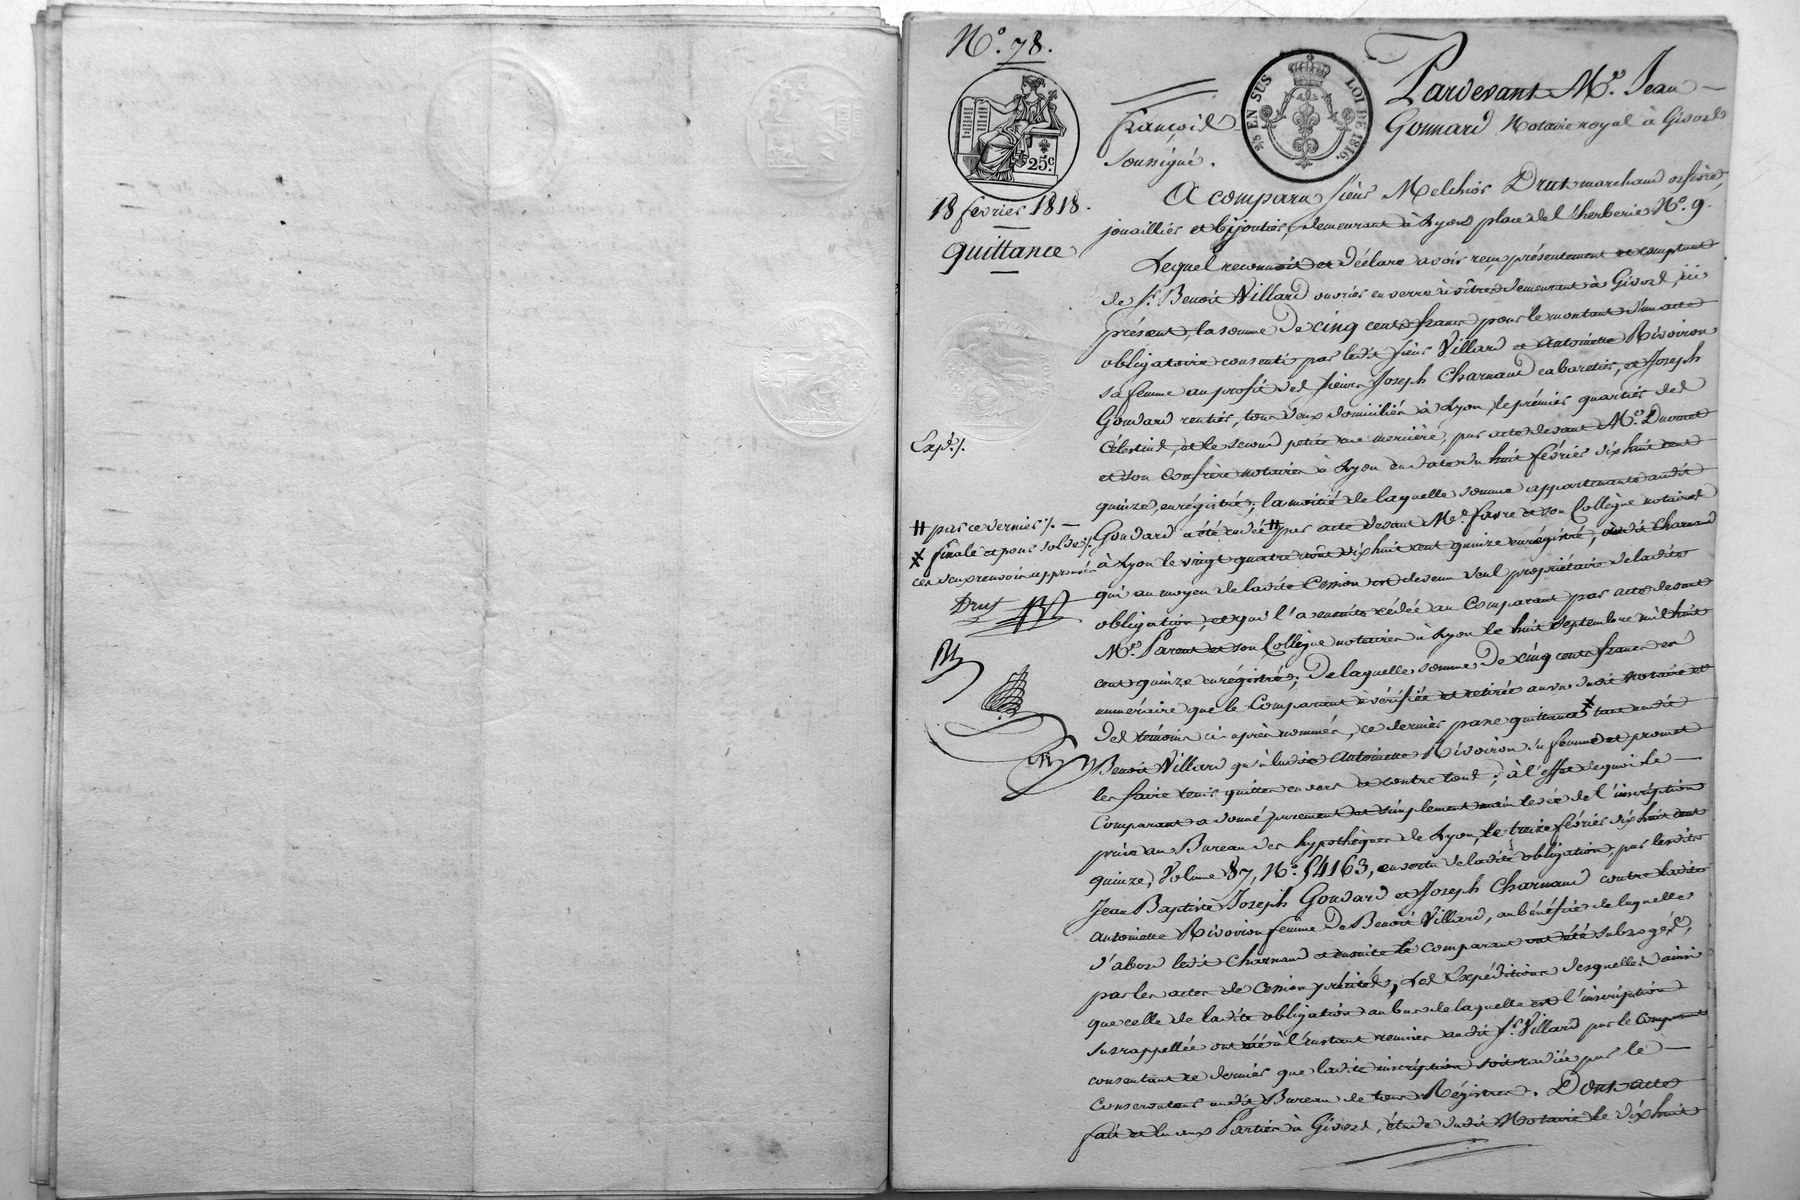 N.º 78.
25.c
25 EN SUS LOI DE 1816.
18 février 1818.
quittance
Pardevant M.e Jean
françois Gonnard Notaire royal à Givors
soussigné.
A comparu sieur Melchior Drut marchand orfèvre,
jouaillier et bijoutier, demeurant à Lyon place de l'herberie N.º 9.
Lequel reconnoit et déclare avoir reçu présentement et comptant
de s.r Benoit Villard ouvrier en verre à vitres demeurant à Givors, ici
présent, la somme de cinq cents francs pour le montant d'un acte
obligatoire consenti par ledit sieur Villard et Antoinette Rivoiron
sa femme au profit des sieurs Joseph Charnaud cabaretier, et Joseph
Goudard rentier, tous deux domiciliés à Lyon, le prémier quartier des
Célestins, et le second petite rue mercière, par acte devant M.e Duvernet
et son confrère notaires à Lyon en date du huit février dix huit cent
quinze, enrégistré; la moitié de laquelle somme appartenante audit
Goudard a été cédée # par acte devant M.e favre et son Collègue notaires
à Lyon le vingt quatre août dix huit cent quinze enrégistré, audit Charnaud
qui au moyen de ladite Cession est devenu seul propriétaire de ladite
obligation, et qui l'a ensuite cédée au Comparant par acte devant
M.e Parent et son Collègue notaires à Lyon le huit septembre mil huit
cent quinze enrégistré; De laquelle somme De cinq cents francs en
numéraire que le Comparant a vérifiée et retirée au vu dudit Notaire et
des témoins ci après nommés, ce dernier passe quittance X tant audit
Benoit Villard qu'à ladite Antoinette Rivoiron sa femme et promet
les faire tenir quittes envers et contre tous; à l'effet de quoi le
Comparant a donné purement et simplement main levée de l'inscription
prise au Bureau des hypothèques de Lyon, le treize février dix huit cent
quinze, Volume 87, N.º 54163, en vertu de ladite obligation, par lesdits
Jean Baptiste Joseph Goudard et Joseph Charnaud contre ladite
Antoinette Rivoiron femme De Benoit Villard, au bénéfice de laquelle
d'abord ledit Charnaud et ensuite le comparant ont été subrogés,
par les actes de Cession précités, Les Expéditions desquelles ainsi
que celle de ladite obligation au bas de laquelle est l'inscription
susrappellée ont été à l'instant remises audit s.r Villard par le Comparant
consentant ce dernier que ladite inscription soit radiée par le
Conservateur audit Bureau de tous Régistres. Dont acte
fait et lu aux Parties à Givors, étude dudit Notaire le dix huit
Expé.
# par ce dernier
X finale et pour solde
ces deux renvois approuvés
Drut